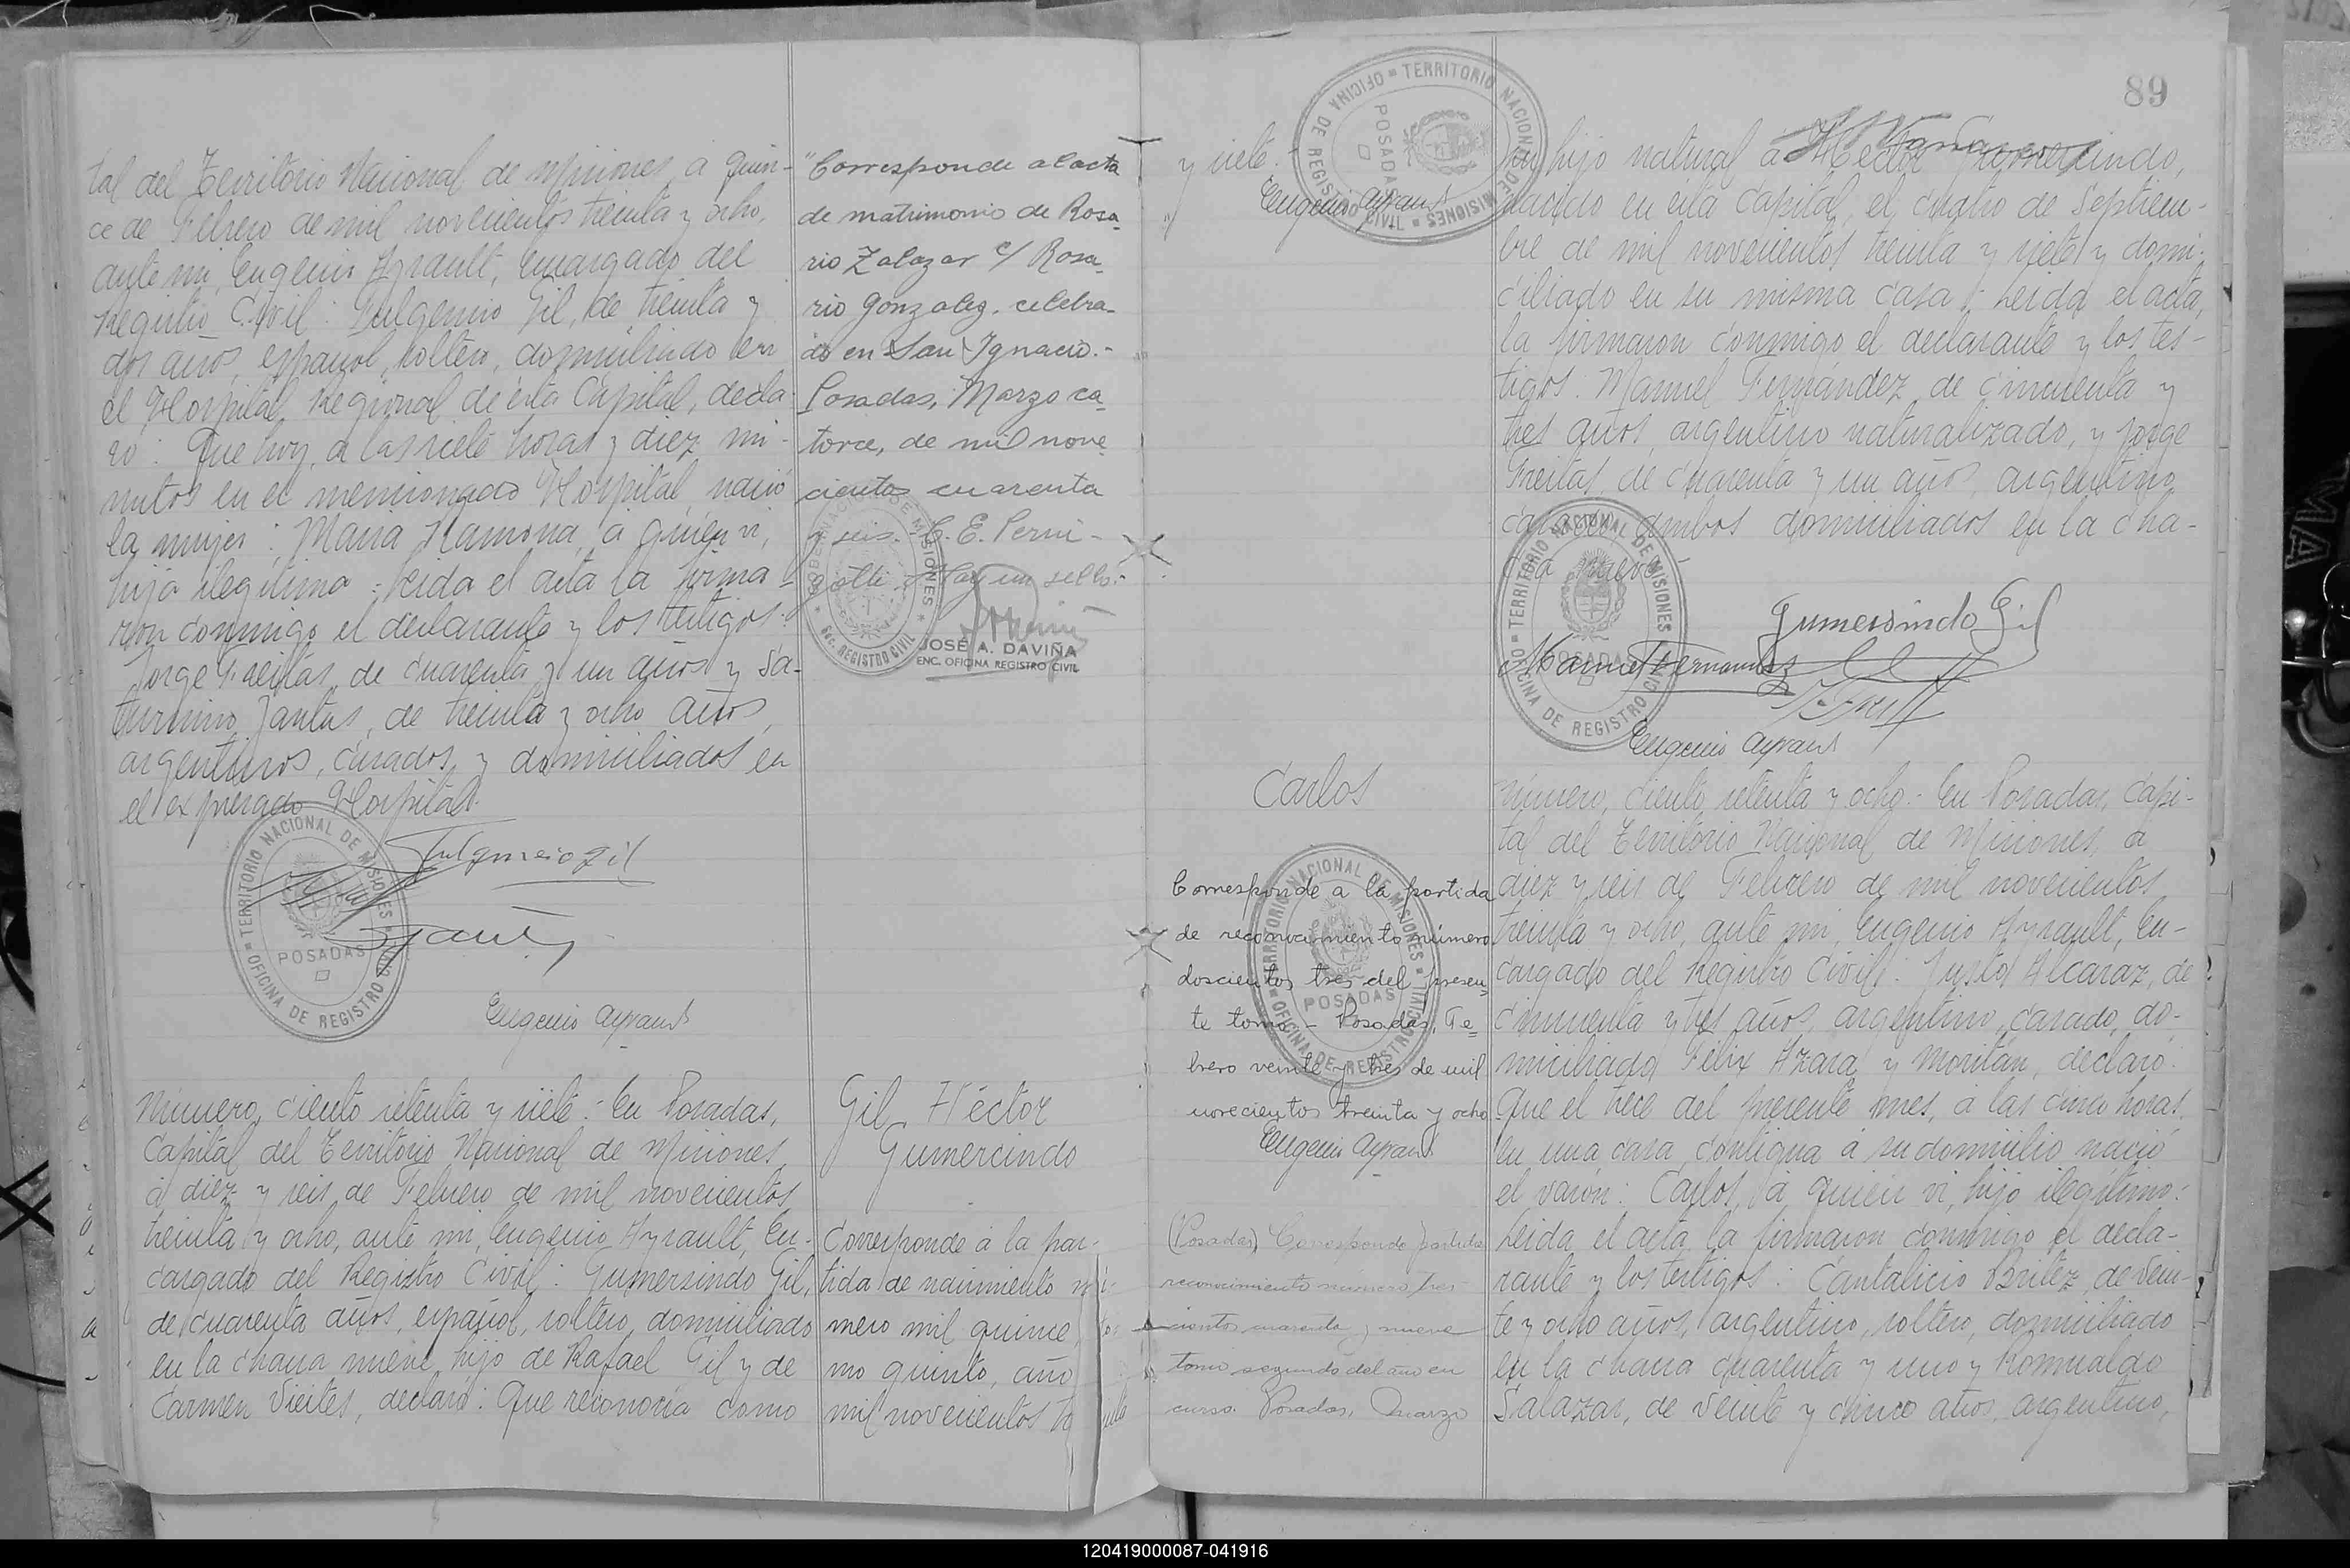 tal del Territorio Nacional de Misiones, a quin-
ce de Febrero de mil novecientos treinta y ocho,
ante mi, Eugenio Ayrault, Encargado del
Registro Civil: Fulgencio Gil, de treinta y
dos años, español, soltero, domiciliado en
el Hospital Regional de esta Capital, decla-
ró: Que hoy, a las siete horas y diez mi-
nutos en el mencionado Hospital, nació
la mujer: Maria Ramona, a quien vi,
hija ilegitima: Leida el acta la firma-
ron conmigo el declarante y los testigos:
Jorge Freitas, de cuarenta y un años y Sa-
turnino Santus, de treinta y ocho años,
argentinos, casados, y domiciliados en
el expresado Hospital.
TERRITORIO NACIONAL DE MISIONES
POSADAS
OFICINA DE REGISTRO CIVIL
Fulgencio Gil
Eugenio Ayrault
Número, ciento setenta y siete.- En Posadas,
Capital del Territorio Nacional de Misiones,
a diez y seis de Febrero de mil novecientos
treinta y ocho, ante mi, Eugenio Ayrault, En-
cargado del Registro Civil: Gumersindo Gil,
de cuarenta años, español, soltero, domiciliado
en la chacra nueve, hijo de Rafael Gil y de
Carmen Vieites, declaró: Que reconocía como
"Corresponde al acta
de matrimonio de Rosa-
rio Zalazar c/ Rosa-
rio Gonzalez. celebra-
do en San Ignacio.-
Posadas, Marzo ca-
torce, de mil nove
cientos cuarenta
y seis.- C. E. Perni-
gotti Hay un sello.-
GOBERNACION DE MISIONES
Sec. REGISTRO CIVIL
JOSÉ A. DAVIÑA
ENC. OFICINA REGISTRO CIVIL
Gil Héctor
Gumercindo
Corresponde a la par-
tida de nacimiento nú-
mero mil quince,
mo quinto, año
mil novecientos
89
y siete.
Eugenio Ayrault
TERRITORIO NACIONAL DE MISIONES
POSADAS
OFICINA DE REGISTRO CIVIL
su hijo natural a Hector Gumersindo,
nacido en esta Capital, el cuatro de Septiem-
bre de mil novecientos treinta y siete y domi-
ciliado en su misma casa: Leida el acta,
la firmaron conmigo el declarante y los tes-
tigos: Manuel Fernández, de cincuenta y
tres años, argentino naturalizado, y Jorge
Freitas, de cuarenta y un años, argentino
casados, ambos domiciliados en la cha-
cra nueve.
TERRITORIO NACIONAL DE MISIONES
POSADAS
OFICINA DE REGISTRO CIVIL
Gumersindo Gil
Manuel Fernandez
Eugenio Ayrault
Carlos
TERRITORIO NACIONAL DE MISIONES
POSADAS
OFICINA DE REGISTRO CIVIL
Corresponde a la partida
de reconocimiento número
doscientos tres del presen-
te tomo.- Posadas, Fe-
brero veinte y tres de mil
novecientos treinta y ocho
Eugenio Ayrault
(Posadas) Corresponde partida
reconocimiento número tres
cientos cuarenta y nueve
tomo segundo del año en
curso. Posadas, Marzo
Número, ciento setenta y ocho.- En Posadas, Capi-
tal del Territorio Nacional de Misiones, a
diez y seis de Febrero de mil novecientos
treinta y ocho, ante mi, Eugenio Ayrault, En-
cargado del Registro Civil: Justo Alcaraz, de
cincuenta y tres años, argentino, casado, do-
miciliado Félix Azara y Moritán, declaró:
Que el trece del presente mes, a las cinco horas,
en una casa contigua a su domicilio nació
el varón: Carlos, a quien vi, hijo ilegitimo:
Leida el acta la firmaron conmigo el decla-
rante y los testigos: Cantalicio Britez, de vein-
te y ocho años, argentino, soltero, domiciliado
en la chacra cuarenta y uno y Romualdo
Salazar, de veinte y cinco años, argentino,
120419000087-041916